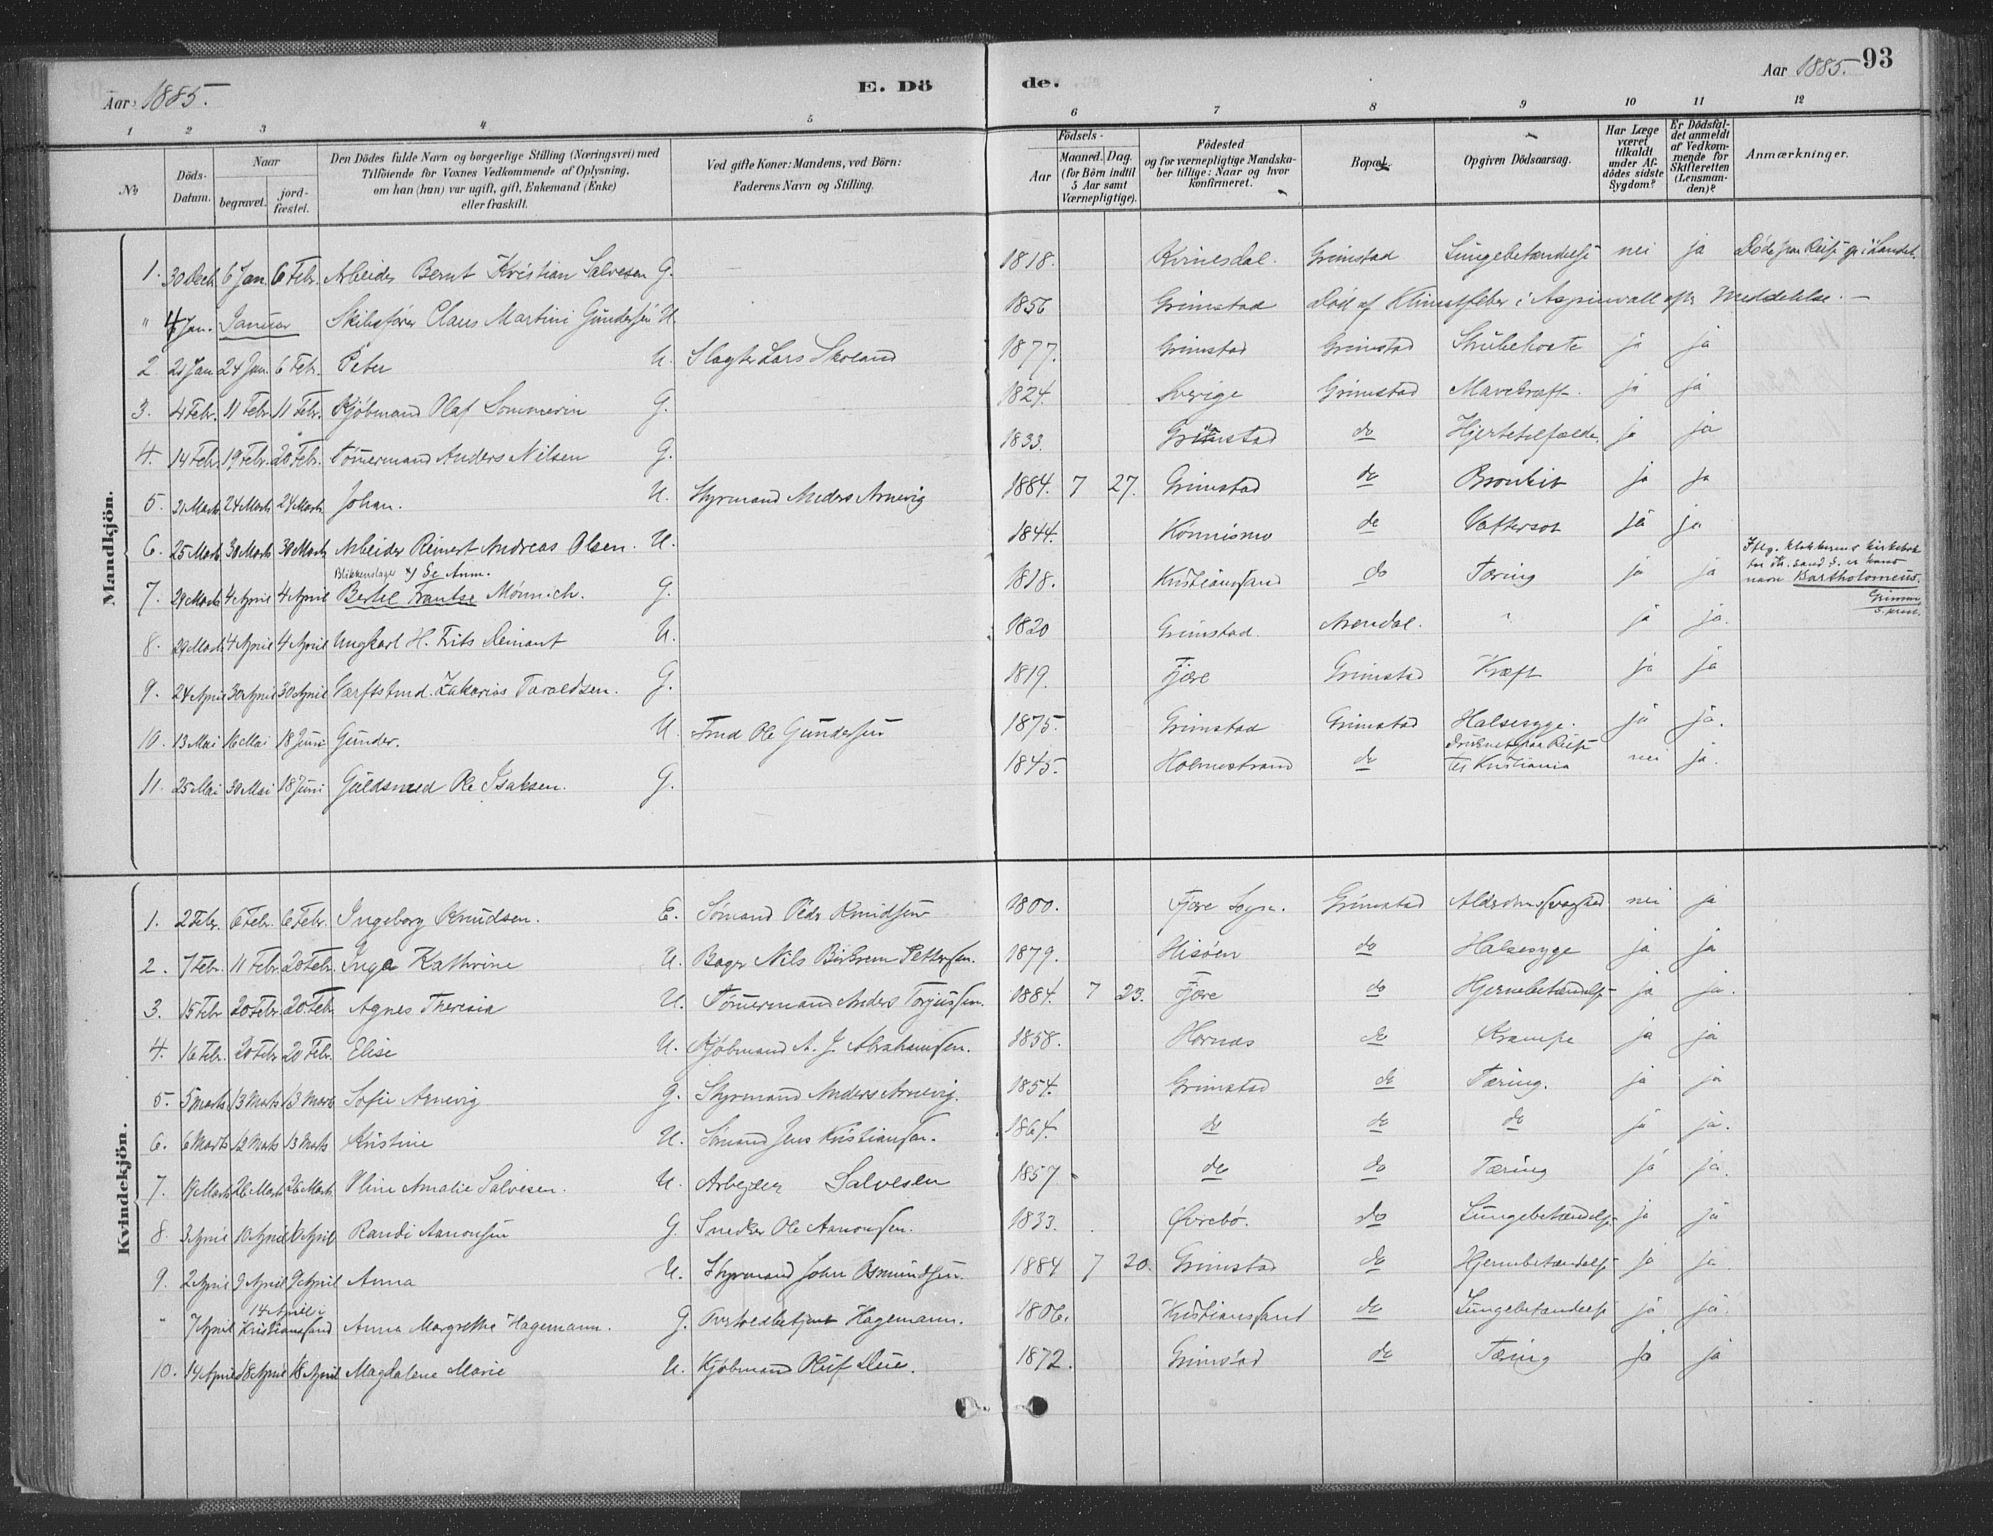 Aar 1885. E. Dö de. Aar 1885. 93
1 2 3 4 5 6 7 8 9 10 11 12
No Döds-Datum. Naar begravet. jord-fæstet. Den Dödes fulde Navn og borgerlige Stilling (Næringsvei) med Tilföiende for Voxnes Vedkommende af Oplysning, om han (hun) var ugift, gift, Enkemand (Enke) eller fraskilt. Ved gifte Koner: Mandens, ved Börn: Faderens Navn og Stilling. Födsels- Aar Maaned. Dag. (for Börn indtil 5 Aar samt Værnepligtige). Födested og for værnepligtige Mandskaber tillige: Naar og hvor konfirmeret. Bopæl. Opgiven Dödsaarsag. Har Læge været tilkaldt under Afdödes sidste Sygdom? Er Dödsfaldet anmeldt af Vedkommende for Skifteretten (Lensmanden)? Anmærkninger.
Mandkjön.
1. 30 Decb. 6 Jan. 6 Febr. Arbeider Bernt Kristian Salvesen G. 1818. Kvinesdal. Grimstad Lungebetændelse nei ja Døde paa Reise
" 4 Jan. Januar Skibsfører Claus Martini Gundersen U. 1856 Grimstad Død af Klimatfeber i Aspinwall efter Meddelelse. —
2 21 Jan 24 Jan. 6 Febr. Peter U. Slagter Lars Skoland 1877. Grimstad Grimstad Strubehoste ja ja
3. 4 Febr. 11 Febr. 11 Febr. Kjøbmand Olaf Sommerin G. 1824. Sverige Grimstad Mavekræft. ja ja
4. 14 Febr. 19 Febr. 20 Febr. Tømmermand Anders Nilsen G. 1833. Grimstad do Hjertetilfælde. ja ja
5. 21 Marts 24 Marts 24 Marts Johan. U. Styrmand Anders Arnevig 1884. 7 27. Grimstad do Bronkit ja ja
6. 25 Marts 30 Marts 30 Marts Arbeider Reinert Andreas Olsen. U. 1844. Konnismo do Vattersot ja ja
7. 29 Marts 4 April 4 April Blikkenslager x) Se Anm. Bertel Frantse Mønnich. G. 1818. Kristianssand do Tæring ja ja Iflg. klokkerens kirkebok for Kr.sand S. er hans navn Bartholomeus.
8. 29 Marts 4 April 4 April Ungkarl H. Frits Deinant U. 1820 Grimstad. Arendal. " ja ja.
9. 24 April 30 April 30 April Værftstmd. Zakarias Taraldsen. G. 1819. Fjære Grimstad Kræft ja ja
10. 13 Mai 16 Mai 18 Juni Gunder. U Ole Gundersen 1875. Grimstad Grimstad Halsesyge. ja ja.
11. 25 Mai 30 Mai 18 Juni Guldsmed Ole Isaksen. G. 1845. Holmestrand do Druknet paa Reise til Kristiania nei ja.
Kvindekjön.
1. 2 Febr. 6 Febr. 6 Febr. Ingeborg Knudsen. E. Sømand Peder Knudsen 1800. Fjære Sogn. Grimstad Alderdomssvaghed nei ja
2. 7 Febr. 11 Febr. 20 Febr. Inga Kathrine U. Bager Nils Birkrem Pettersen. 1879. Hisøen do Halsesyge ja ja
3. 15 Febr 20 Febr. 20 Febr. Agnes Theresia U. Tømmermand Anders Torjussen. 1884. 7 23. Fjære do Hjernebetændelse ja ja.
4. 16 Febr. 20 Febr 20 Febr. Elise U. Kjøbmand A. J. Abrahamsen. 1858. Hornæs do Krampe ja ja
5. 5 Marts 13 Marts 13 Marts Sofie Arnevig G. Styrmand Anders Arnevig. 1854. Grimstad do Tæring. ja ja
6. 6 Marts 13 Marts 13 Marts Kristine U. Sømand Jens Kristiansen. 1864. do do do ja ja.
7. 19 Marts 26 Marts 26 Marts Oline Amalie Salvesen. U. Arbejder Salvesen 1857 do do Tæring ja ja.
8 3 April 10 April 10 April Randi Aanonsen G. Snedker Ole Aanonsen. 1833. Øvrebø. do Lungebetændelse ja ja
9. 2 April 9 April 9 April Anna U. Styrmand John Osmundsen. 1884 7 20. Grimstad do Hjernebetændelse ja ja.
" 7 April 14 April i Kristianssand Anna Margrethe Hagemann. G. Overtoldbetjent Hagemann. 1806. Kristianssand do Lungebetændelse ja ja.
10. 14 April 18 April 18 April Magdalene Marie U. Kjøbmand Oluf Due. 1872. Grimstad do Tæring ja ja